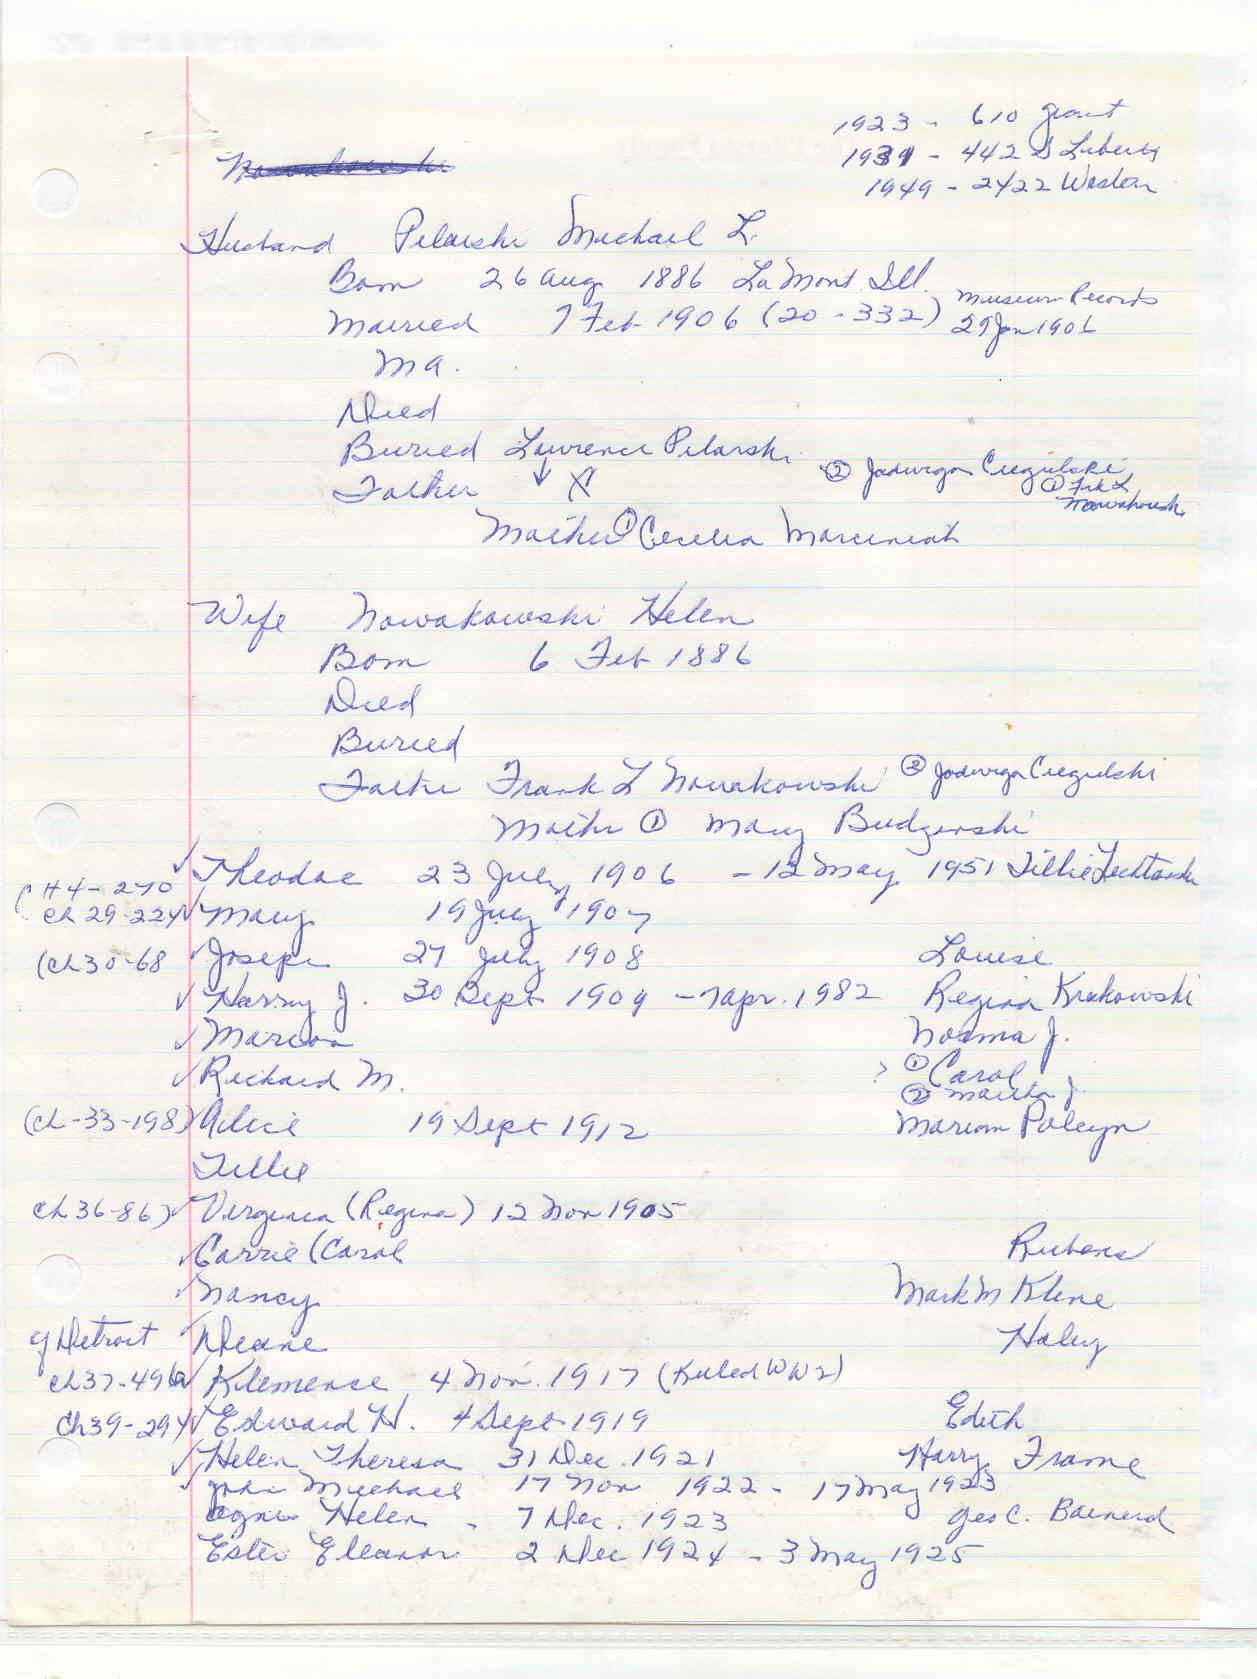 1923 - 610 Grant
1931 - 442 S Liberty
1949 - 2422 Weston
Nowakowski
Husband Pilarski Michael L.
Born 26 Aug 1886 La Mont Ill.
Married 7 Feb 1906 (20-332) Museum Records
29 Jan 1906
Ma.
Died
Buried Lawrence Pilarski
Father ↓ X ② Jadwiga Cregulski
① Frk L
Nowakowski
Mother ① Cecelia Marciniak
Wife Nowakowski Helen
Born 6 Feb 1886
Died
Buried
Father Frank L Nowakowski ② Jadwiga Cregulski
Mother ① Mary Budzinski
✓ Theodore 23 July 1906 - 12 May 1951 Tillie
(H4-270
Ch 29-224 ✓ Mary 19 July 1907
(Ch 30-68 ✓ Joseph 27 July 1908 Louise
✓ Harry J. 30 Sept 1909 - 7 Apr. 1982 Regina Krakowski
✓ Marion Norma J.
✓ Richard M. ? ① Carol
② Martha J.
(Ch-33-198) Alice 19 Sept 1912 Marion Poleyn
Tillie
Ch 36-86) ✓ Virginia (Regina) 12 Nov 1905
✓ Carrie (Carol Rubens
✓ Nancy Mark M Kline
of Detroit Diane Haley
Ch 37-496 ✓ Klemense 4 Nov. 1917 (Killed WW2)
Ch 39-294 ✓ Edward H. 4 Sept 1919 Edith
✓ Helen Theresa 31 Dec. 1921 Harry Frame
✓ John Michael 17 Nov 1922 - 17 May 1923
Agnes Helen - 7 Dec. 1923 Geo C. Barnerd
Ester Eleanor 2 Dec 1924 - 3 May 1925